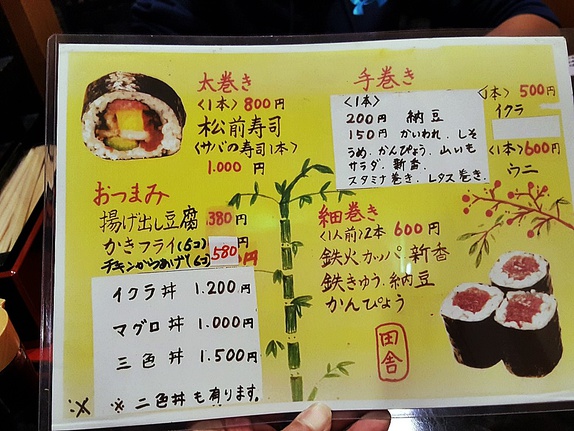 太巻き
〈1本〉800円
松前寿司
〈サバの寿司1本〉
1.000円
手巻き
〈1本〉
200円 納豆
150円 かいわれ.しそ
うめ.かんぴょう.山いも
サラダ.新香.
スタミナ巻き.レタス巻き.
〈1本〉500円
イクラ
〈1本〉600円
ウニ
おつまみ
揚げ出し豆腐 380円
かきフライ(5コ) 円
チキンからあげ(6コ) 580円
イクラ丼 1.200円
マグロ丼 1.000円
三色丼 1.500円
※ ※ 二色丼も有ります。
細巻き
〈1人前〉2本 600円
鉄火カッパ新香
鉄きゅう.納豆
かんぴょう
田舎